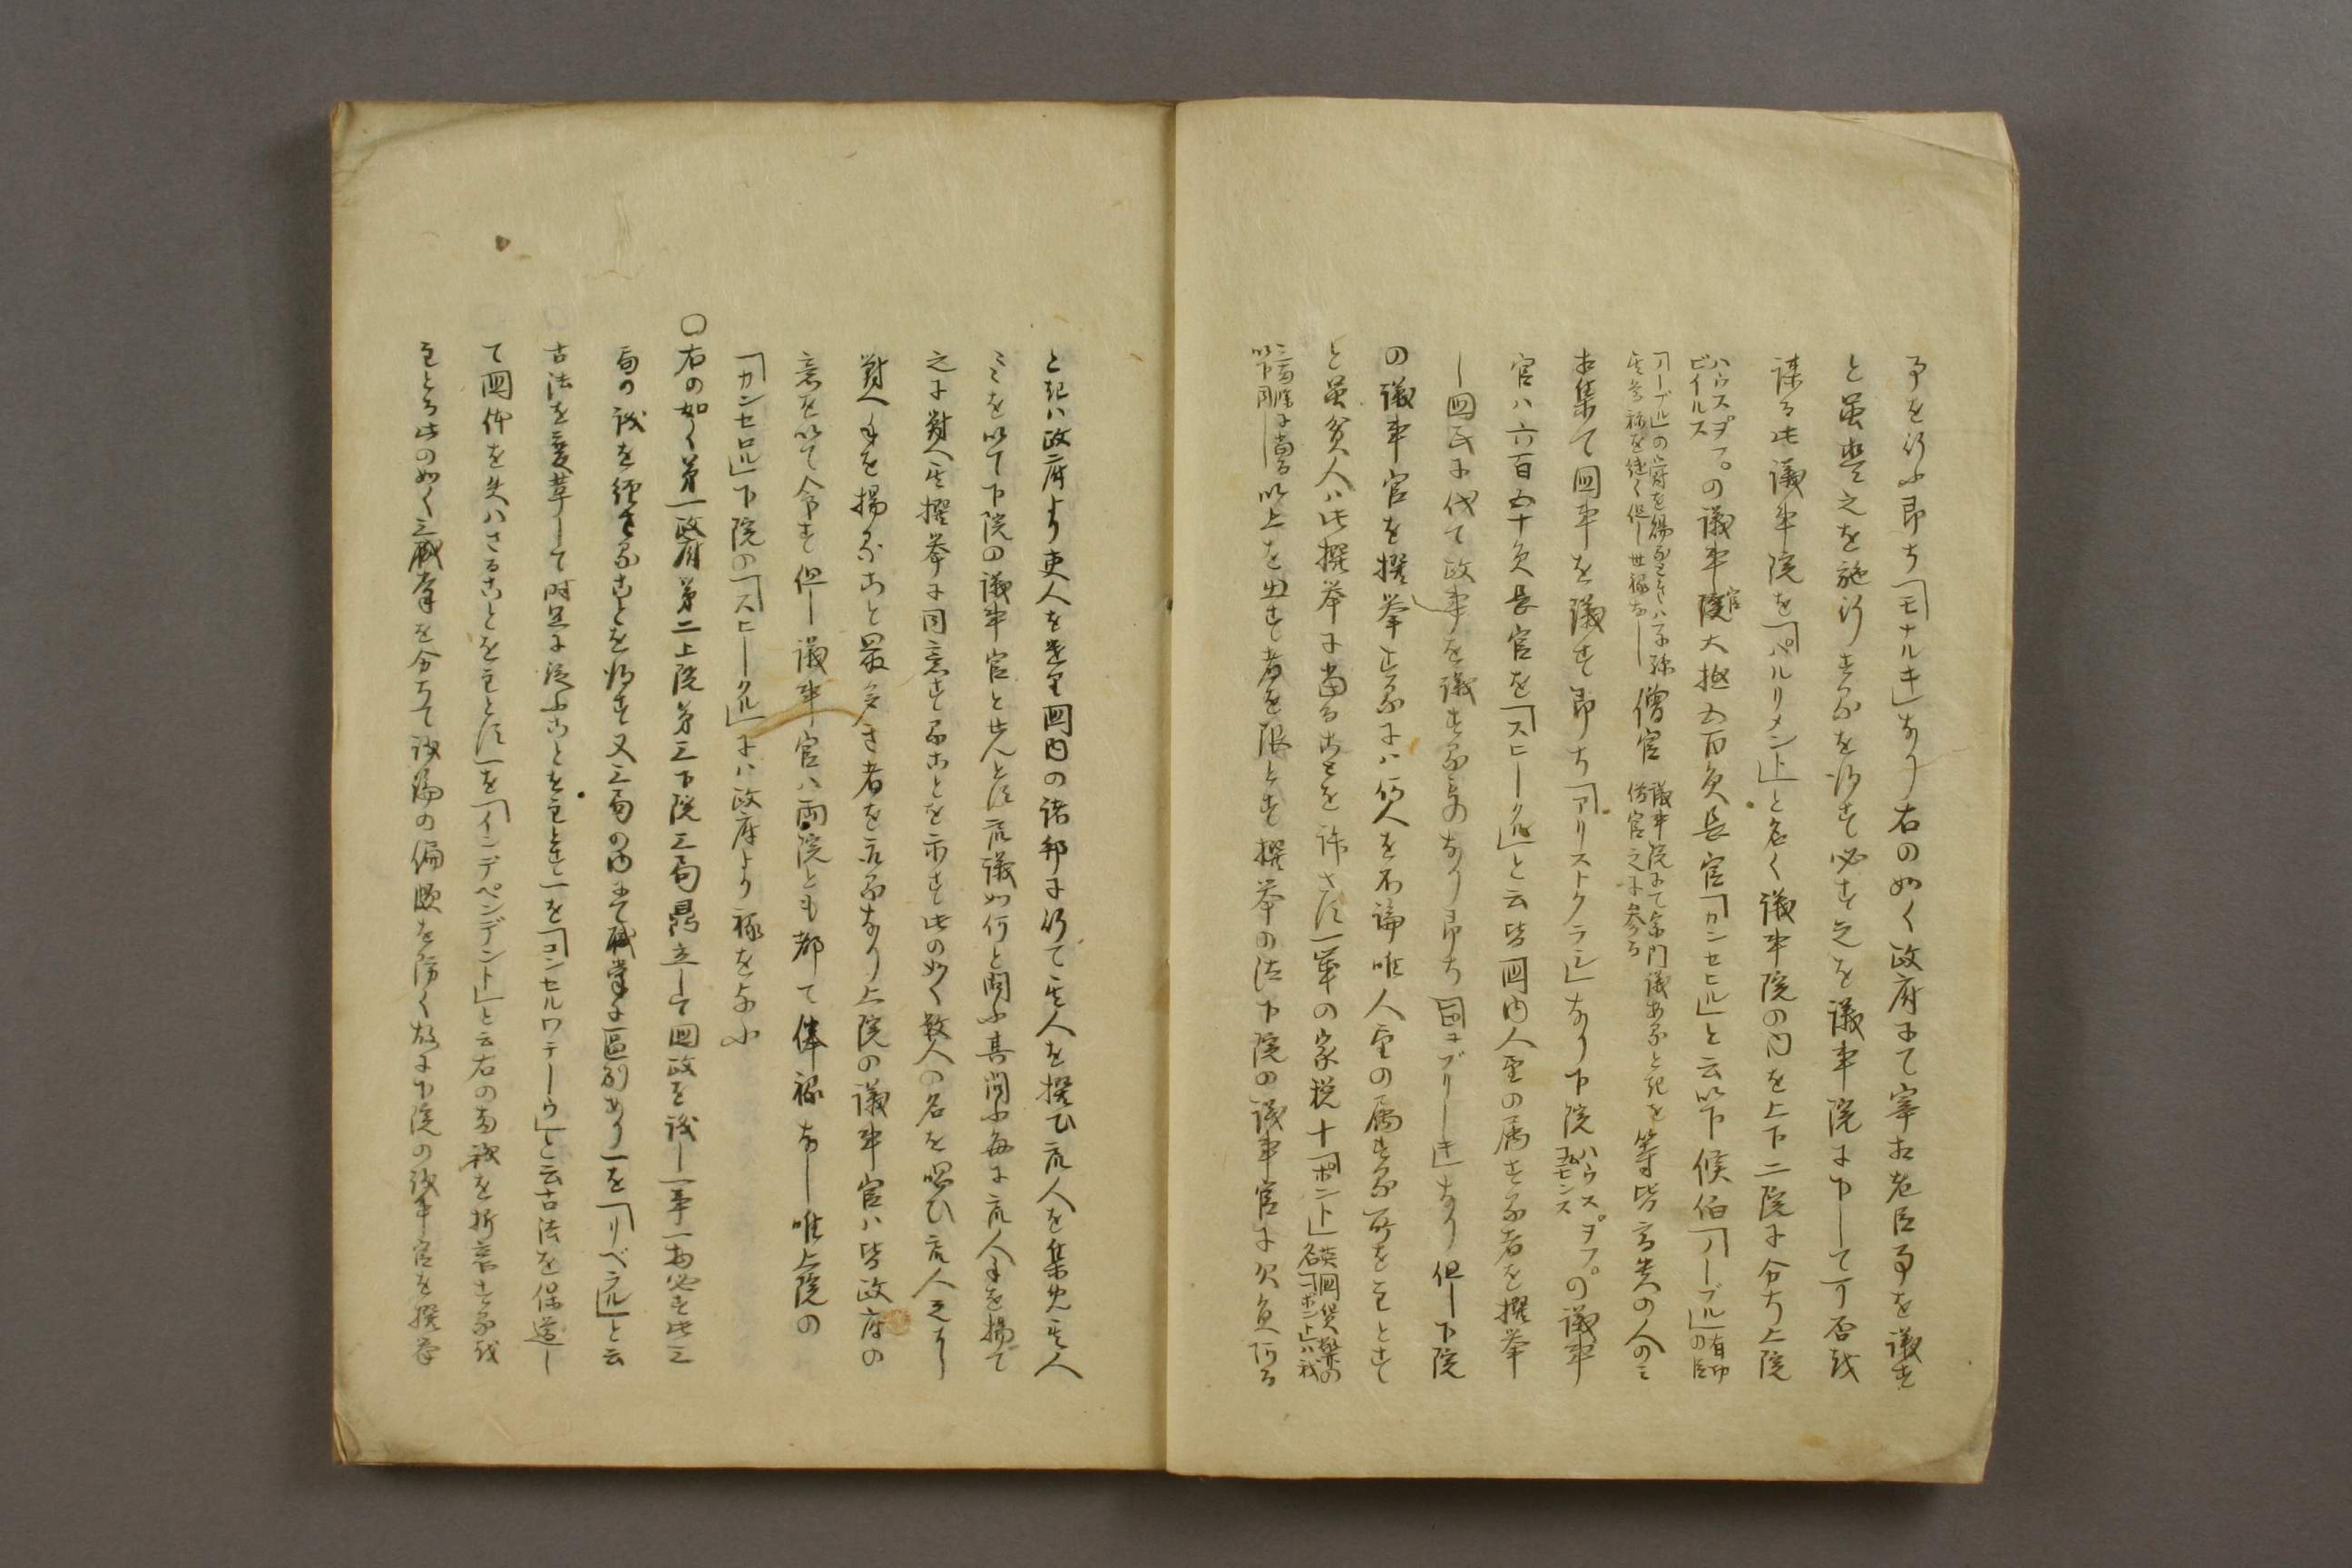 事を行ふ即ち「モナルキ」なり右の如く政府にて宰相老臣事を議す
と虽豊之を施行する を得す必す之を議事院に下して可否を
謀る此議事院を「パルリメント」と名く議事院の内を上下二院に分ち上院
ハウスヲフ。ピイルスの議事官大抵五百員長官「カンセヒル」と云以下候伯「ノーブル」の臣
「ノーブル」の 府を賜るときハ子孫其 称を継く但し世禄なし 僧官 議事院にて宗門議あると記を僧官之に参る 等皆高貴の人のミ
お集て国事を議す即ち「アリストクラシ」なり下院ハウスヲフ。コムモンスの議事
官ハ六百五十員長官を「スヒークル」と云皆国内人望の属する者を撰挙
し国民に代て政事を議するものなり即ち「レピュブリーキ」なり但し下院
の議事官を撰挙するにハ何人を不論唯人望の属する所を主とす
と虽貧人ハ此撰挙に当ることを許さす一軍の家税十「ポント」英国貨幣の名「ポント」ハ我
三両 に当る以下同し 以上を出す者を限とす撰挙の法下院の議事官に欠員ある
と記ハ政府より吏人を 国内の諸邦に行て其人を撰ひ衆人を集め其人
ミを以て下院の議事官と せんとす衆議如何と問ふ其問ふ毎に衆人手を揚て
之に對へ其撰挙に同意することを示す此の如く数人の名を唱ひ衆人之に
對へ手を揚ること最多き者を衆るなり上院の議事官ハ皆政府の
意を以て命す但し議事官ハ両院とも都て俸禄なし唯上院の
「カンセロル」下院の「スヒークル」にハ政府より禄を与ふ
○右の如く第一政府第二上院第三下院三局鼎立して国政を議し一事一物必す此三
局の議を経さることを得す又三局の内にて職掌に区別あり一を「リベラル」と云
古法を変革して時宜に従ふことを主と一を「コンセルワテーウ」と云古法を保
て国体を失ハさることを主とす一を「インデペンデント」と云右の両 を折衷する
主とる此の如く三職掌を分ちて議論の偏頗を防く故に下院の議事官を撰挙